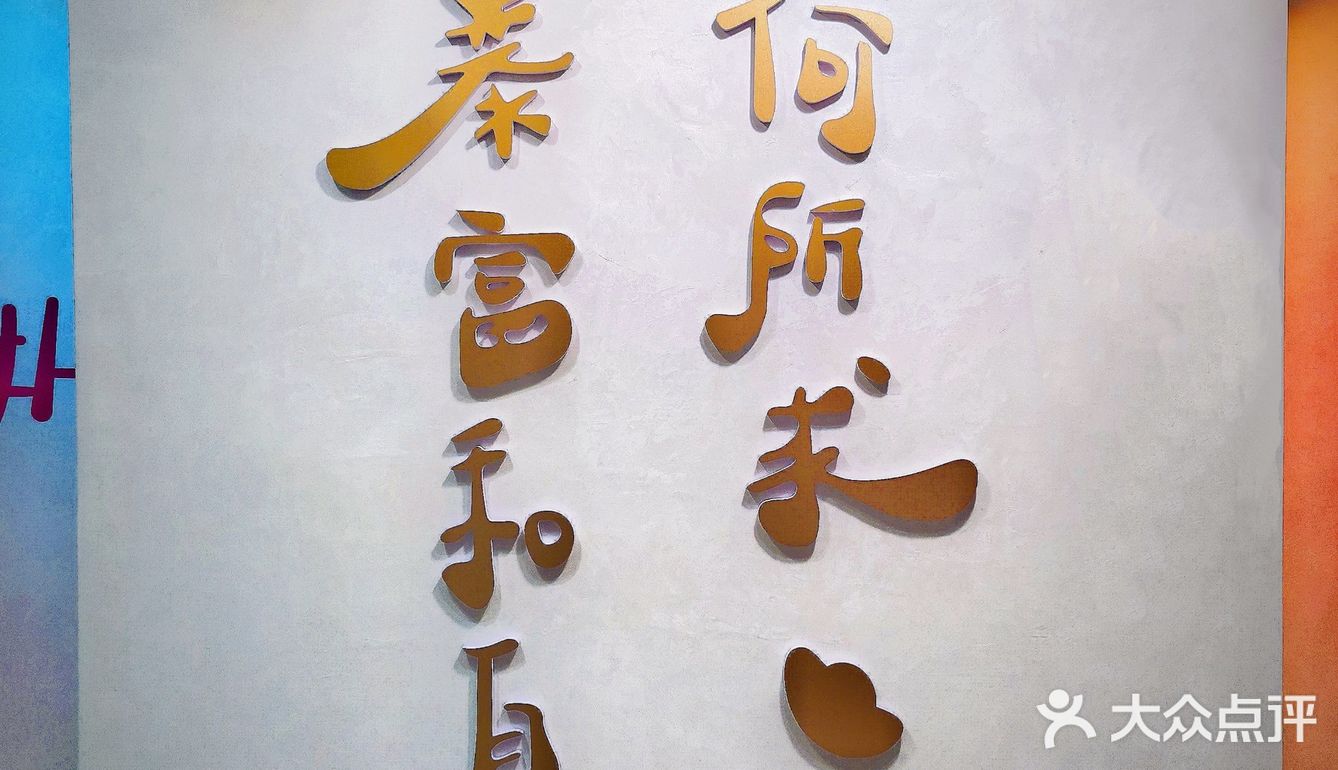 何所求
暴富和
大众点评